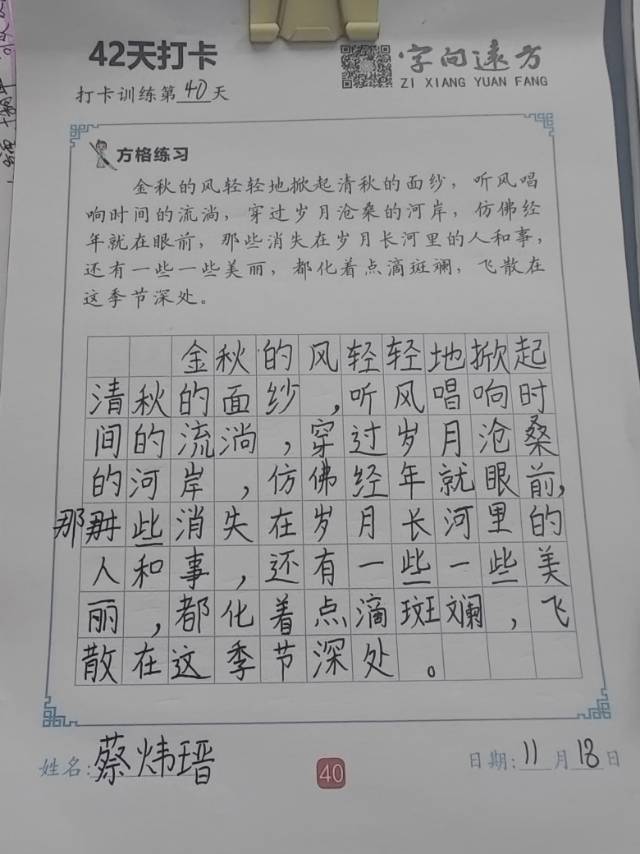 42天打卡
字向遠方
ZI XIANG YUAN FANG
打卡训练第40天
方格练习
金秋的风轻轻地掀起清秋的面纱，听风唱
响时间的流淌，穿过岁月沧桑的河岸，仿佛经
年就在眼前，那些消失在岁月长河里的人和事，
还有一些一些美丽，都化着点滴斑斓，飞散在
这季节深处。
金秋的风轻轻地掀起
清秋的面纱，听风唱响时
间的流淌，穿过岁月沧桑
的河岸，仿佛经年就眼前，
那些消失在岁月长河里的
人和事，还有一些一些美
丽，都化着点滴斑斓，飞
散在这季节深处。
姓名：蔡炜瑨
40
日期：11月18日